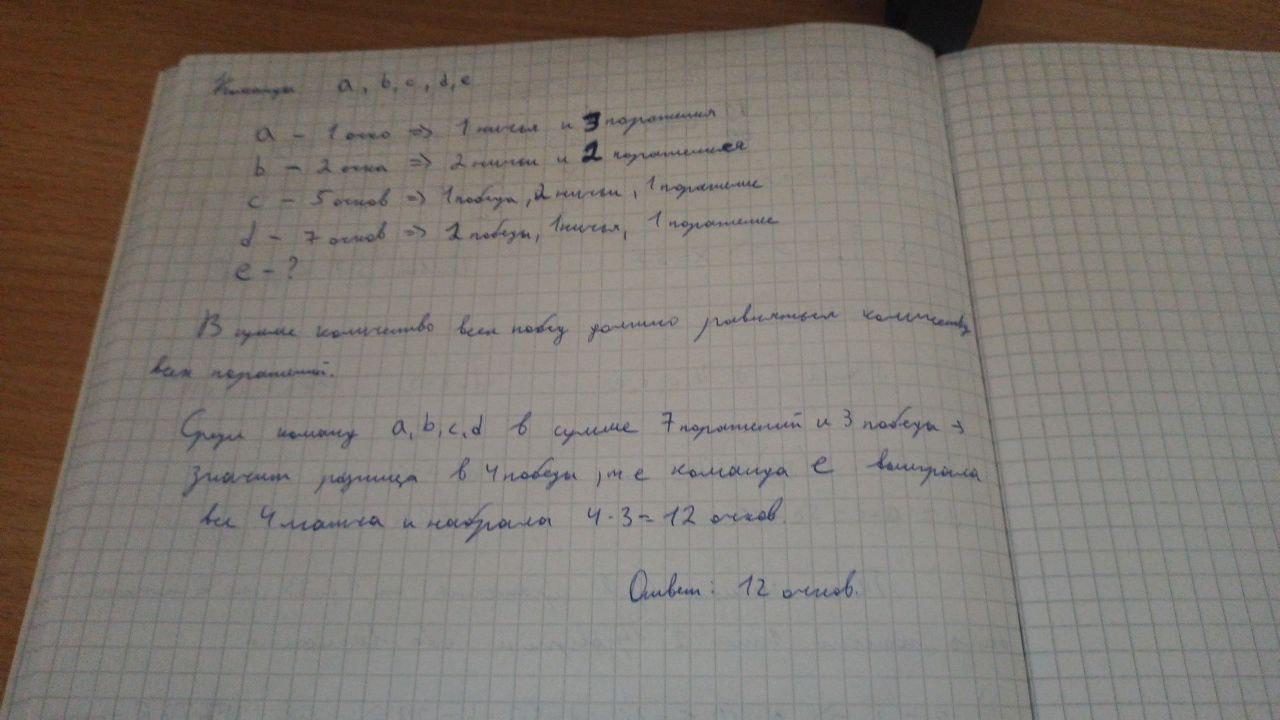 Команды a, b, c, d, e
a - 1 очко => 1 ничья и 3 поражения
b - 2 очка => 2 ничьи и 2 поражения
c - 5 очков => 1 победа, 2 ничьи, 1 поражение
d - 7 очков => 2 победы, 1 ничья, 1 поражение
e - ?
В сумме количество всех побед должно равняться количеству
всех поражений.
Среди команд a, b, c, d в сумме 7 поражений и 3 победы →
значит разница в 4 победы, т е команда e выиграла
все 4 матча и набрала 4·3=12 очков.
Ответ: 12 очков.